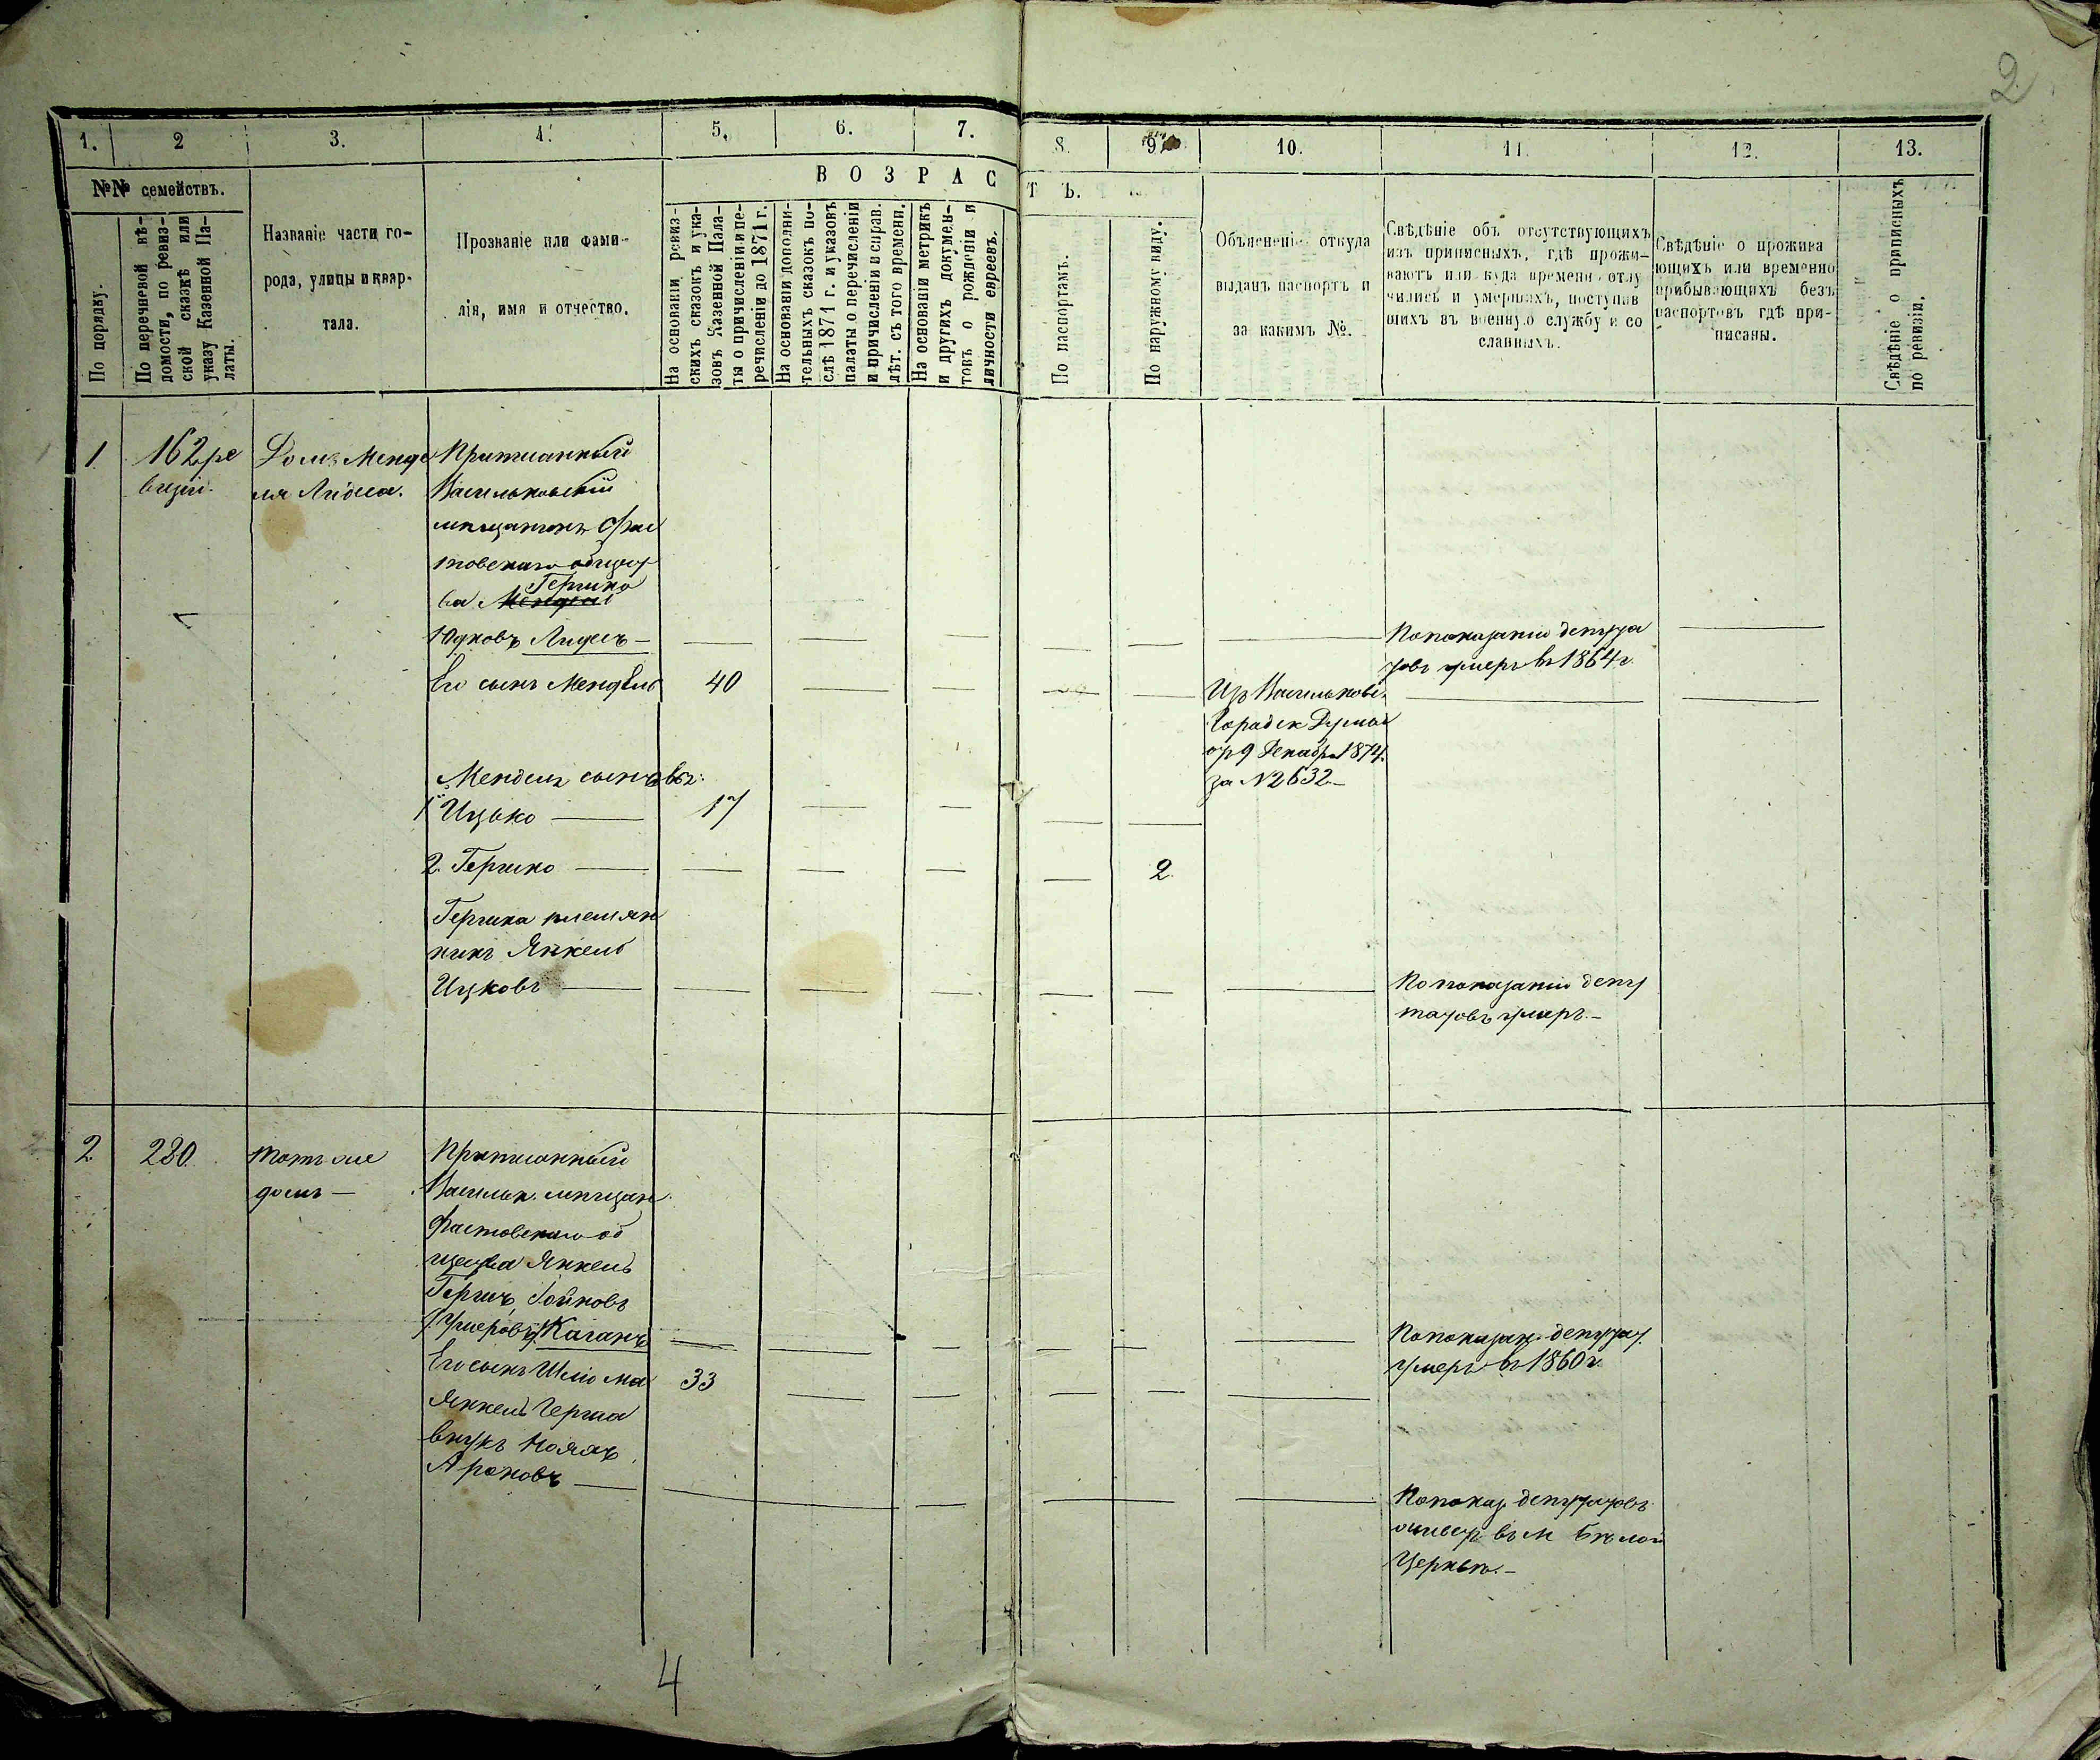 2
1.
2
3.
4.
5.
6.
7.
8.
9.
10.
11.
12.
13.
№№ семействъ.
По порядку.
По перечневой вѣ-
домости, по ревиз-
ской сказкѣ или
указу Казенной Па-
латы.
Названіе части го-
рода, улицы и квар-
тала.
Прозваніе или фами-
лія, имя и отчество.
ВОЗРАСТЪ.
На основаніи ревиз-
скихъ сказокъ и ука-
зовъ Казенной Пала-
ты о причисленіи и пе-
речисленіи до 1871 г.
На основаніи дополни-
тельныхъ сказокъ по-
слѣ 1871 г. и указовъ
палаты о перечисленіи
и причисленіи и справ.
лѣт. съ того времени.
На основаніи метрикъ
и другихъ докумен-
товъ о рожденіи и
личности евреевъ.
По паспортамъ.
По наружному виду.
Объясненіе откуда
выданъ паспортъ и
за какимъ №.
Свѣдѣніе объ отсутствующихъ
изъ приписныхъ, гдѣ прожи-
ваютъ или куда времени отлу
чились и умершихъ, поступив
шихъ въ военную службу и со
сланныхъ.
Свѣдѣніе о прожива
ющихъ или временно
прибывающихъ безъ
паспортовъ гдѣ при-
писаны.
Свѣдѣніе о приписныхъ
по ревизіи.
1
162 ре
визіи.
Домъ Менде
ля Лидеса.
Приписанный
Васильковскій
мѣщанинъ Фас
товскаго общест
Гершко
ва Мендель
Юдковъ Лидесъ —
По показанію депута
товъ умеръ въ 1864 г.
Его сынъ Мендель
40
Изъ Васильковс.
Городск Думы
отъ 9 Декабря 1874.
за №2632.—
Менделя сыновья:
1й Ицько —
17
2. Гершко —
2.
Гершка племян
никъ Янкель
Ицковъ —
По показанію депу
татовъ умеръ.—
2
280.
тотъ же
домъ —
Приписанный
Васильк. мѣщан.
Фастовскаго об
щества Янкель
Гершъ
Каганъ
По показан. депутат.
умеръ въ 1860 г.
Его сынъ Шліома
33
Янкель Герша
внукъ
Ароновъ —
По показ. депутатовъ
въ м Бѣлой
Церкви.—
4